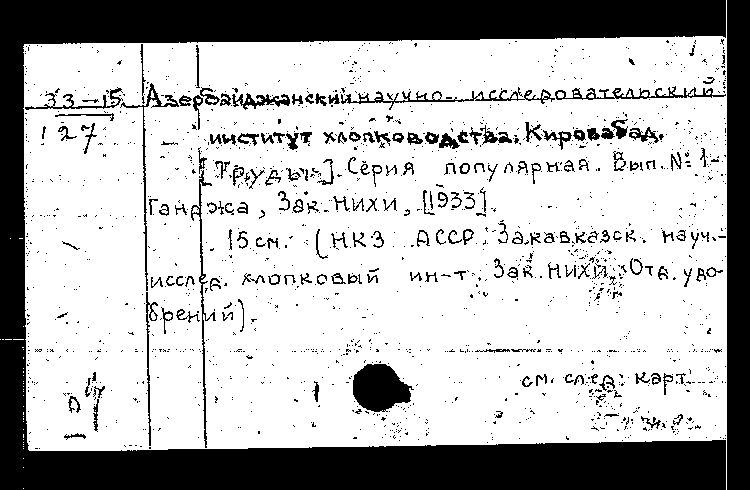 33-15 Азербайджанский научно-исследовательский
127 институт хлопководства. Кировабад.
[Труды]. Серия популярная. Вып. №1-
Ганджа, Зак. НИХИ, [1933].
15 см. (НКЗ АССР. Закавказск. науч.-
исслед. хлопковый ин-т. Зак. НИХИ. Отд. удо-
брений).
см. след. карт